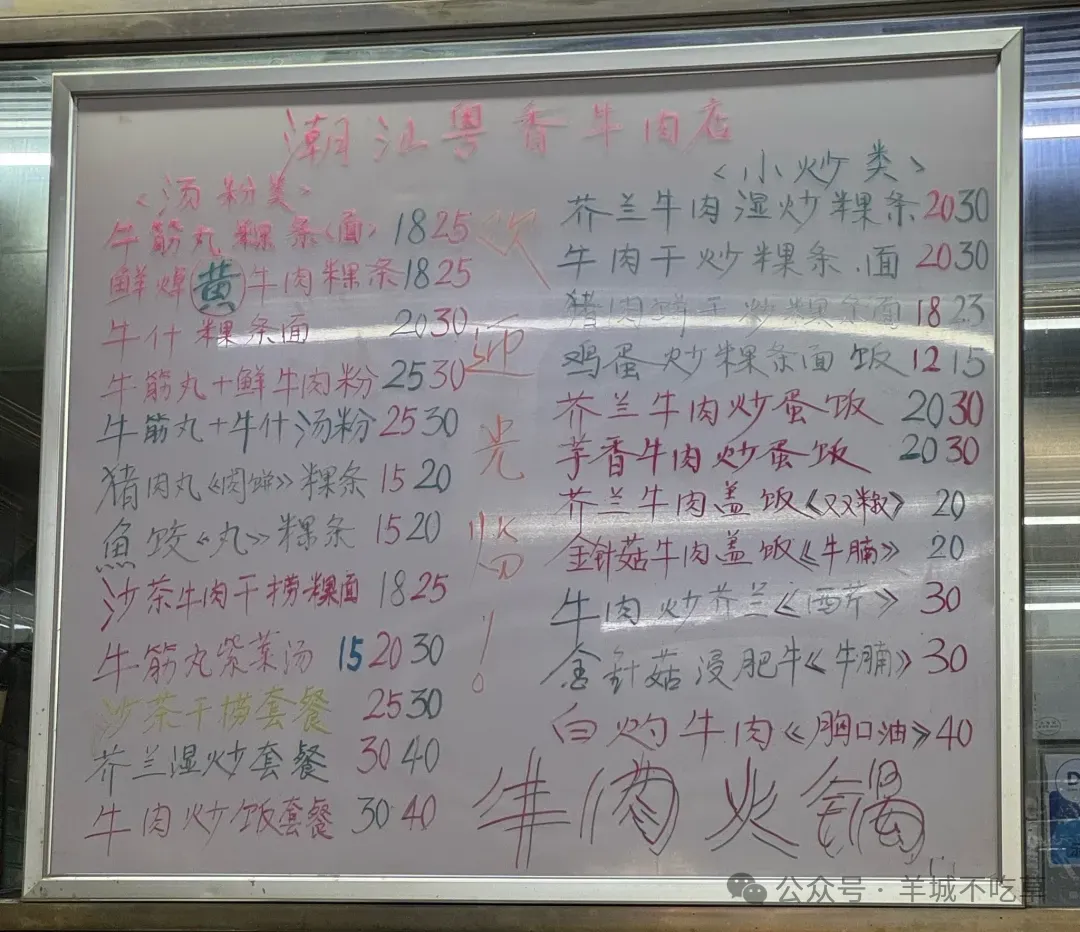 潮汕粤香牛肉店
<汤粉类>
牛筋丸粿条<面> 18 25
鲜焯黄牛肉粿条 18 25
牛什粿条面 20 30
牛筋丸+鲜牛肉粉 25 30
牛筋丸+牛什汤粉 25 30
猪肉丸《肉饼》粿条 15 20
魚饺《丸》粿条 15 20
沙茶牛肉干捞粿面 18 25
牛筋丸紫菜汤 15 20 30
沙茶干捞套餐 25 30
芥兰湿炒套餐 30 40
牛肉炒饭套餐 30 40
欢迎光临!
<小炒类>
芥兰牛肉湿炒粿条 20 30
牛肉干炒粿条.面 20 30
猪肉 干炒粿条面 18 23
鸡蛋炒粿条面饭 12 15
芥兰牛肉炒蛋饭 20 30
芋香牛肉炒蛋饭 20 30
芥兰牛肉盖饭《双椒》 20
金针菇牛肉盖饭《牛腩》 20
牛肉炒芥兰《西芹》 30
金针菇浸肥牛《牛腩》 30
白灼牛肉《胸口油》 40
牛肉火锅
公众号·羊城不吃草